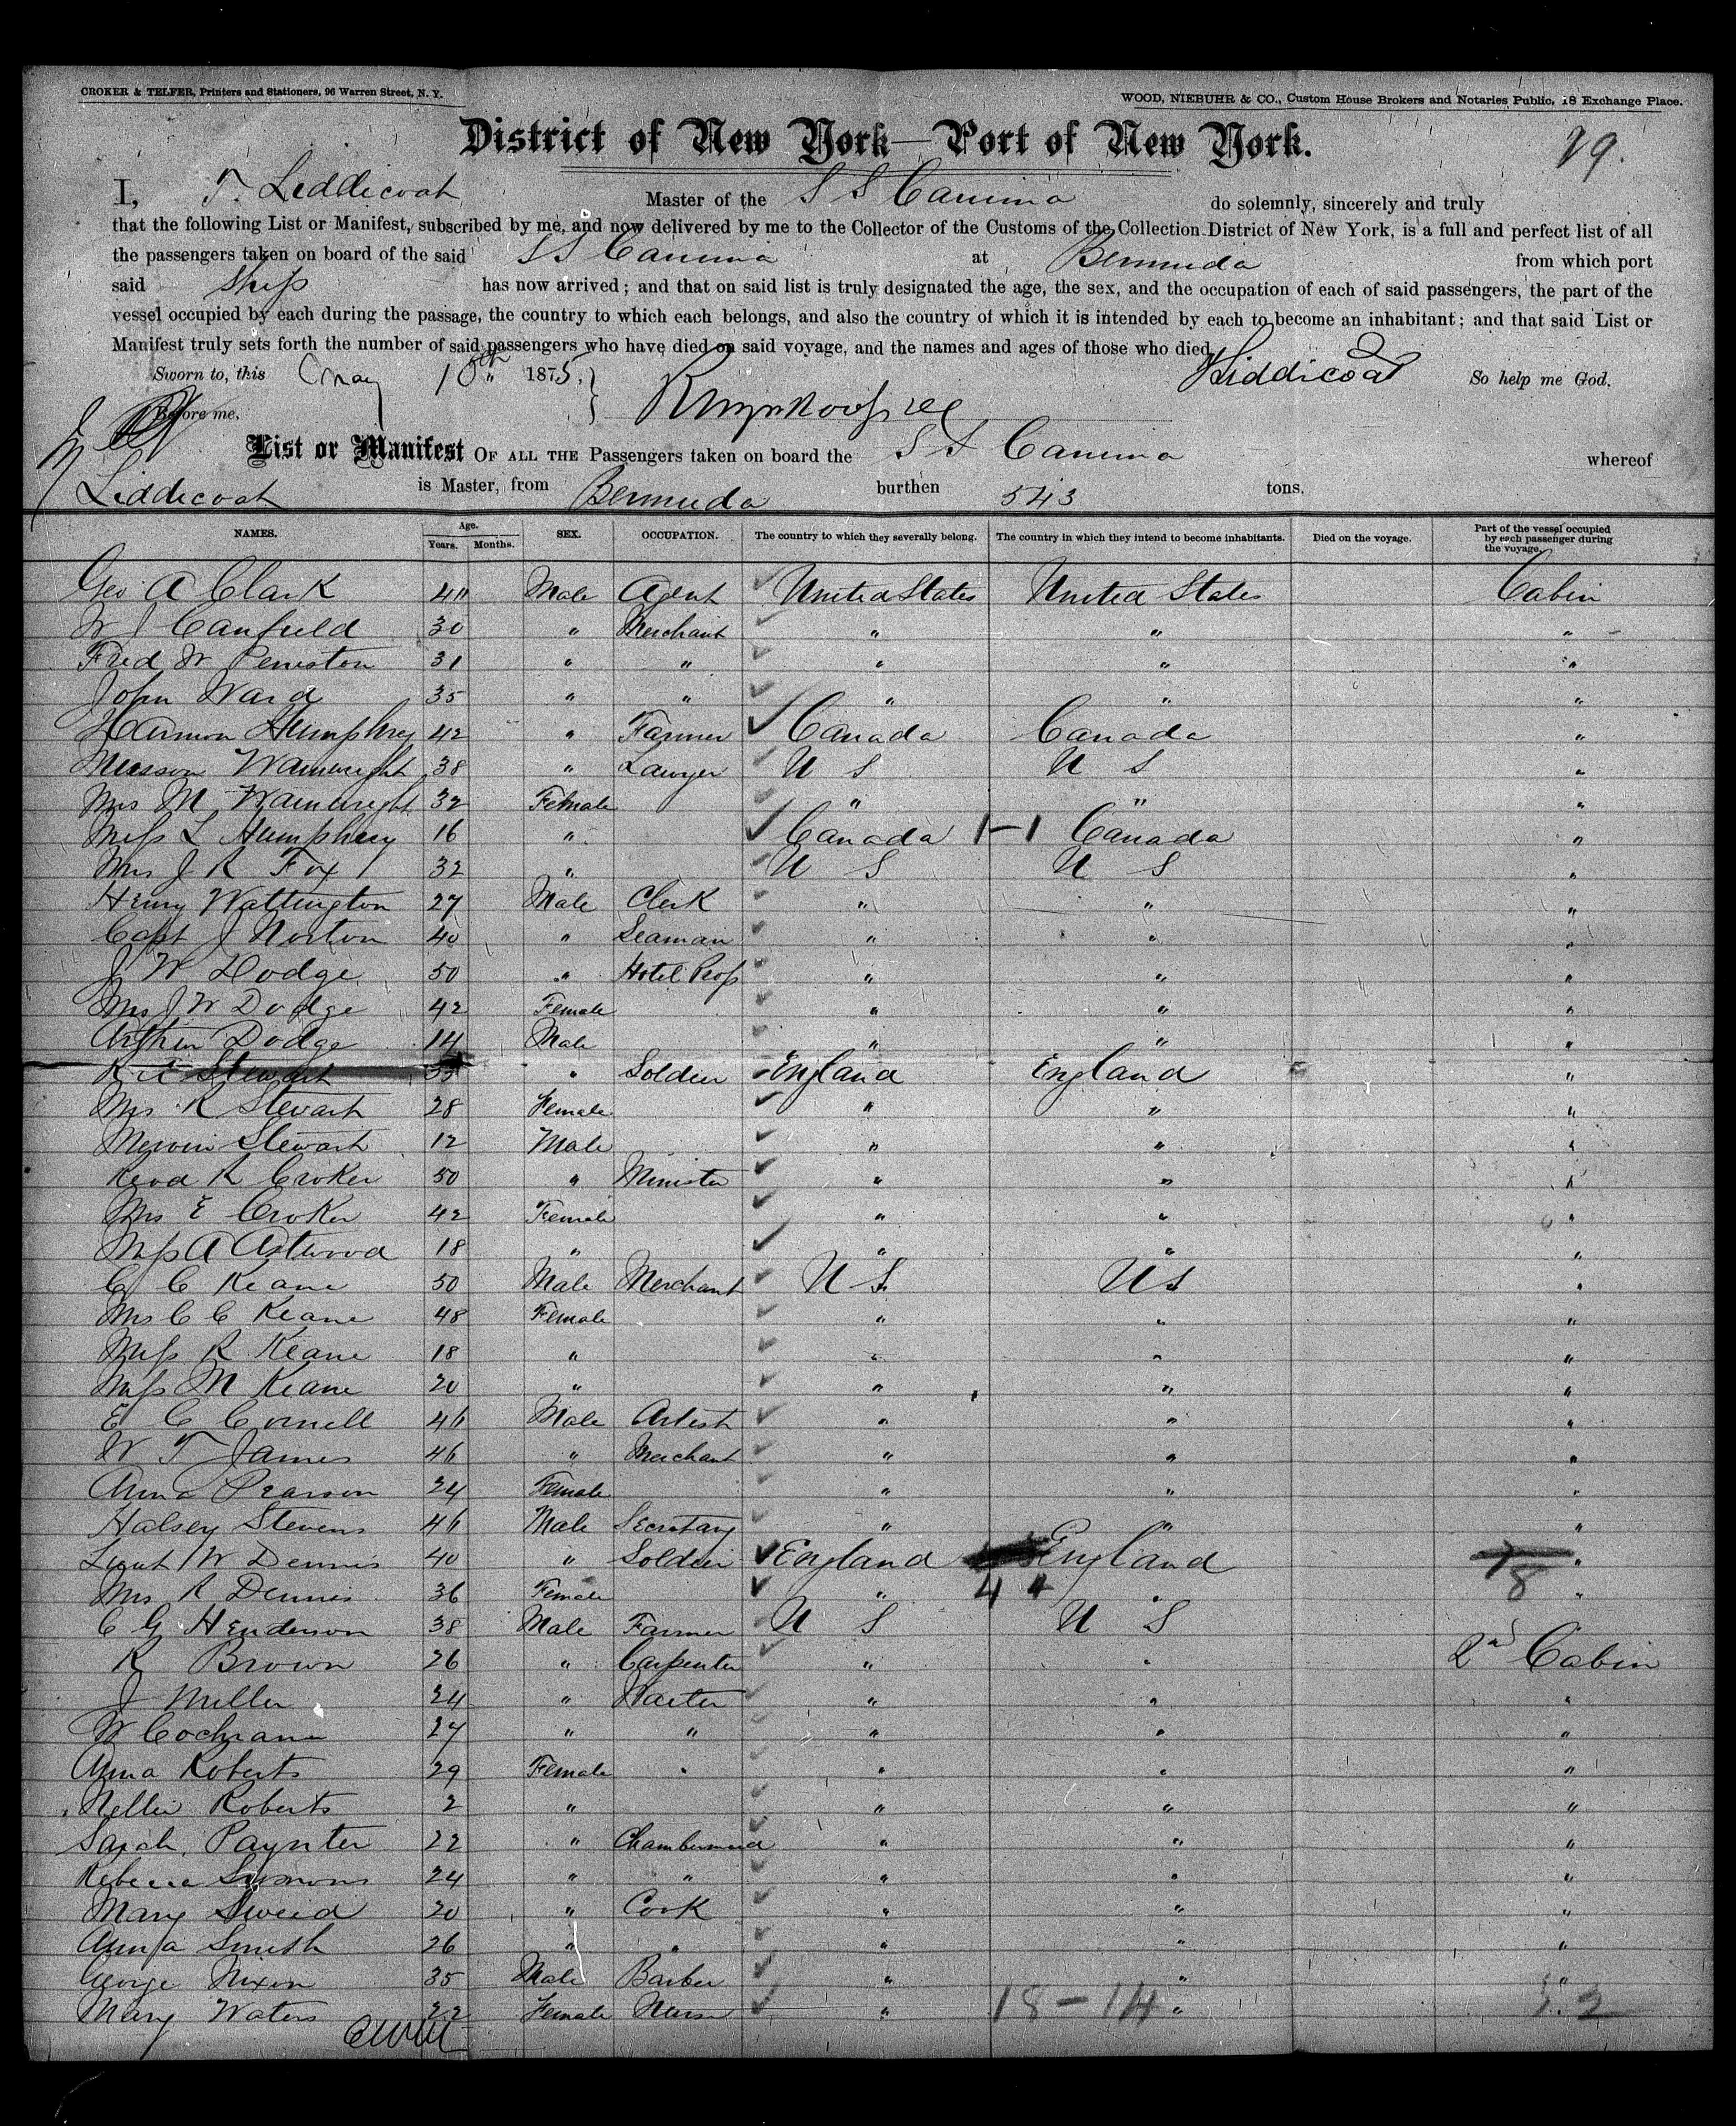 CROKER & TELFER, Printers and Stationers, 96 Warren Street, N. Y.
WOOD, NIEBUHR & CO., Custom House Brokers and Notaries Public, 18 Exchange Place.
District of New York—Port of New York.
I, T. Liddicoat Master of the S S Canima do solemnly, sincerely and truly
that the following List or Manifest, subscribed by me, and now delivered by me to the Collector of the Customs of the Collection District of New York, is a full and perfect list of all
the passengers taken on board of the said S S Canima at Bermuda from which port
said Ship has now arrived; and that on said list is truly designated the age, the sex, and the occupation of each of said passengers, the part of the
vessel occupied by each during the passage, the country to which each belongs, and also the country of which it is intended by each to become an inhabitant; and that said List or
Manifest truly sets forth the number of said passengers who have died on said voyage, and the names and ages of those who died.
Sworn to, this May 10th 1875. Liddicoat So help me God.
Before me.
List or Manifest OF ALL THE Passengers taken on board the S S Canima whereof
Liddicoat is Master, from Bermuda burthen 543 tons.
NAMES. Age. Years. Months. SEX. OCCUPATION. The country to which they severally belong. The country in which they intend to become inhabitants. Died on the voyage. Part of the vessel occupied by each passenger during the voyage.
Geo A Clark Male Agent United States United States Cabin
W J Canfield 30 " Merchant " " "
Fred W Peniston 31 " " " " "
John Ward 35 " " " " "
Harmon Humphrey 42 " Farmer Canada Canada "
Wainwright 38 " Lawyer U S U S "
Mrs M Wainwright 32 Female " " "
Miss L Humphrey 16 " Canada 1-1 Canada "
Mrs J R Fox 32 " U S U S "
Henry Wattington 27 Male Clerk " " "
Capt J Norton 40 " Seaman " " "
J W Dodge 50 " Hotel Prop " " "
Mrs J W Dodge 42 Female " " "
Arthur Dodge 14 Male " " "
R A Stewart 35 " Soldier England England "
Mrs R Stewart 28 Female " " "
Mervin Stewart 12 Male " " "
Revd R Croker 50 " Minister " " "
Mrs E Croker 42 Female " " "
Miss A Astwood 18 " " " "
C C Keane 50 Male Merchant U S U S "
Mrs C C Keane 48 Female " " "
Miss R Keane 18 " " " "
Miss M Keane 20 " " " "
E C Cornell Male Artist " " "
W T James 46 " Merchant " " "
Anna Pearson 24 Female " " "
Halsey Stevens 46 Male Secretary " " "
Lieut W Dennis 40 " Soldier England England "
Mrs R Dennis 36 Female " 4 4 " 8 "
C G Henderson 38 Male Farmer U S U S
R Brown 26 " Carpenter " " 2nd Cabin
J Miller 24 " Waiter " " "
W Cochrane 27 " " " " "
Anna Roberts 29 Female " " " "
Nellie Roberts 2 " " " "
Sarah Paynter 22 " Chambermaid " " "
Rebecca Simons 24 " " " " "
Mary Sweid 20 " Cook " " "
Anna Smith 26 " " " " "
George Nixon 35 Male Barber " " "
Mary Waters 22 Female Nurse " 18-14 "